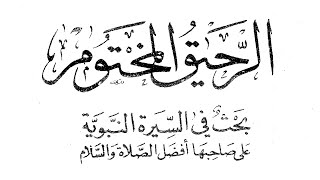 الرحيق المختوم
بحث في السيرة النبوية
على صاحبها أفضل الصلاة والسلام